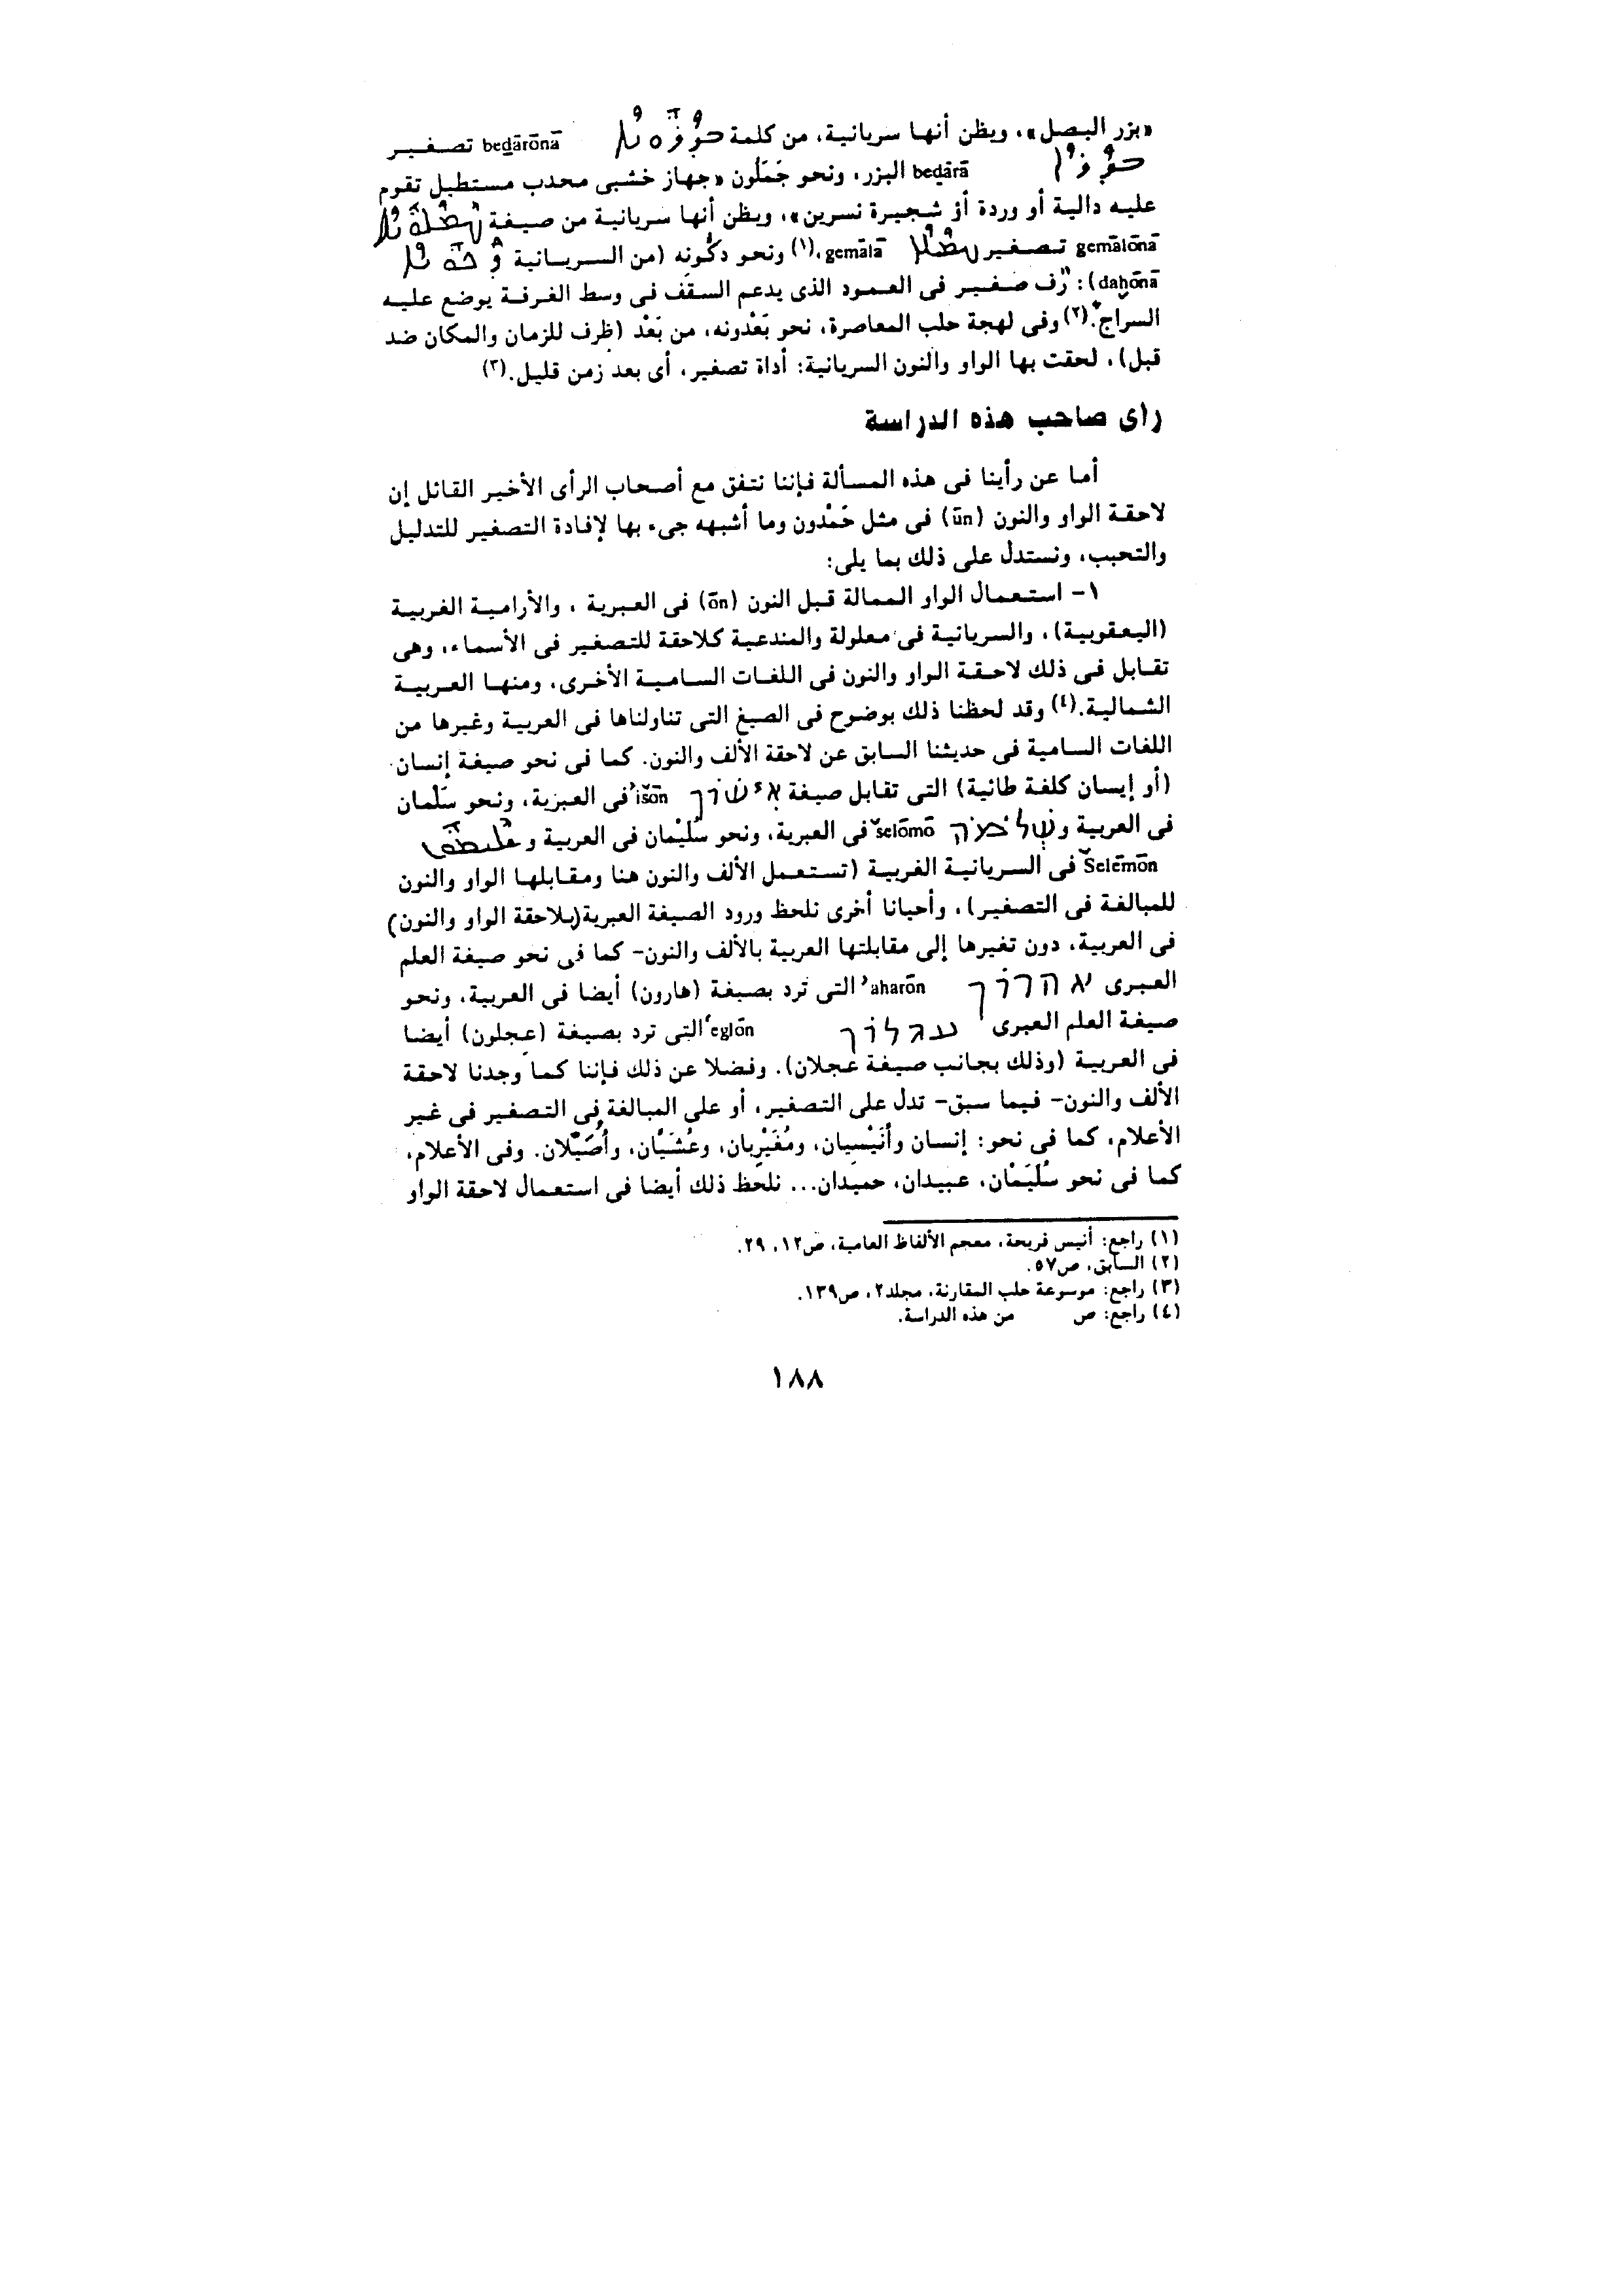 «بزر البصل»، ويظن أنها سريانية، من كلمة beḏārōnā تصغير
beḏārā البزر، ونحو جَمَلُون «جهاز خشبى محدب مستطيل تقوم
عليه دالية أو وردة أو شجيرة نسرين»، ويظن أنها سريانية من صيغة
gemālōnā تصغير gemālā،(١) ونحو دكُّونه (من السريانية
daḫōnā): رّف صغير فى العمود الذى يدعم السقف فى وسط الغرفة يوضع عليه
السراج.(٢) وفى لهجة حلب المعاصرة، نحو بَعْدونه، من بَعْد (ظرف للزمان والمكان ضد
قبل)، لحقت بها الواو والنون السريانية: أداة تصغير، أى بعد زمن قليل.(٣)
رأى صاحب هذه الدراسة
أما عن رأينا فى هذه المسألة فإننا نتفق مع أصحاب الرأى الأخير القائل إن
لاحقة الواو والنون (ūn) فى مثل حَمْدون وما أشبهه جىء بها لإفادة التصغير للتدليل
والتحبب، ونستدل على ذلك بما يلى:
١- استعمال الواو الممالة قبل النون (ōn) فى العبرية ، والأرامية الغربية
(اليعقوبية)، والسريانية فى معلولة والمندعية كلاحقة للتصغير فى الأسماء، وهى
تقابل فى ذلك لاحقة الواو والنون فى اللغات السامية الأخرى، ومنها العربية
الشمالية.(٤) وقد لحظنا ذلك بوضوح فى الصيغ التى تناولناها فى العربية وغيرها من
اللغات السامية فى حديثنا السابق عن لاحقة الألف والنون. كما فى نحو صيغة إنسان
(أو إيسان كلغة طائية) التى تقابل صيغة אישׁוֹן ʾišōn فى العبرية، ونحو سَلْمان
فى العربية و שְׁלֹמֹה šelōmō فى العبرية، ونحو سُليْمان فى العربية و
Šelēmōn فى السريانية الغربية (تستعمل الألف والنون هنا ومقابلها الواو والنون
للمبالغة فى التصغير)، وأحيانا أخرى نلحظ ورود الصيغة العبرية(بلاحقة الواو والنون)
فى العربية، دون تغيرها إلى مقابلتها العربية بالألف والنون- كما فى نحو صيغة العلم
العبرى אהרוֹן ʾaharōn التى ترد بصيغة (هارون) أيضا فى العربية، ونحو
صيغة العلم العبرى עגלוֹן ʿeglōn التى ترد بصيغة (عجلون) أيضا
فى العربية (وذلك بجانب صيغة عجلان). وفضلا عن ذلك فإننا كما وجدنا لاحقة
الألف والنون- فيما سبق- تدل على التصغير، أو على المبالغة فى التصغير فى غير
الأعلام، كما فى نحو: إنسان وأُنَيْسيان، ومُغَيْرِبان، وعُشَيَّان، وأُصَيْلان. وفى الأعلام،
كما فى نحو سُلَيَمْان، عبيدان، حميدان... نلحظ ذلك أيضا فى استعمال لاحقة الواو
(١) راجع: أنيس فريحة، معجم الألفاظ العامية، ص١٢، ٢٩.
(٢) السابق، ص٥٧.
(٣) راجع: موسوعة حلب المقارنة، مجلد٢، ص١٣٩.
(٤) راجع: ص من هذه الدراسة.
١٨٨